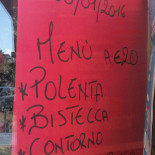 /01/2016
MENÙ A €20
* POLENTA
* BISTECCA
* CONTORNO